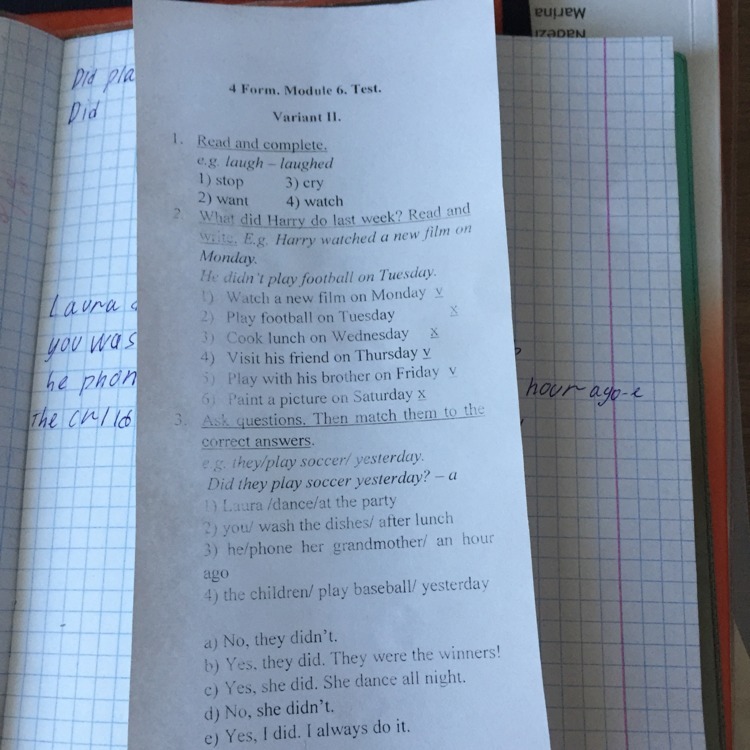 Marina
Did pla
Did
4 Form. Module 6. Test.
Variant II.
1. Read and complete.
e.g. laugh – laughed
1) stop 3) cry
2) want 4) watch
2. What did Harry do last week? Read and
write. E.g. Harry watched a new film on
Monday.
He didn't play football on Tuesday.
1) Watch a new film on Monday v
2) Play football on Tuesday x
3) Cook lunch on Wednesday x
4) Visit his friend on Thursday v
5) Play with his brother on Friday v
6) Paint a picture on Saturday x
3. Ask questions. Then match them to the
correct answers.
e.g. they/play soccer/ yesterday.
Did they play soccer yesterday? – a
1) Laura /dance/at the party
2) you/ wash the dishes/ after lunch
3) he/phone her grandmother/ an hour
ago
4) the children/ play baseball/ yesterday
a) No, they didn't.
b) Yes, they did. They were the winners!
c) Yes, she did. She dance all night.
d) No, she didn't.
e) Yes, I did. I always do it.
Laura
you was
he phon
the child
hour ago-e